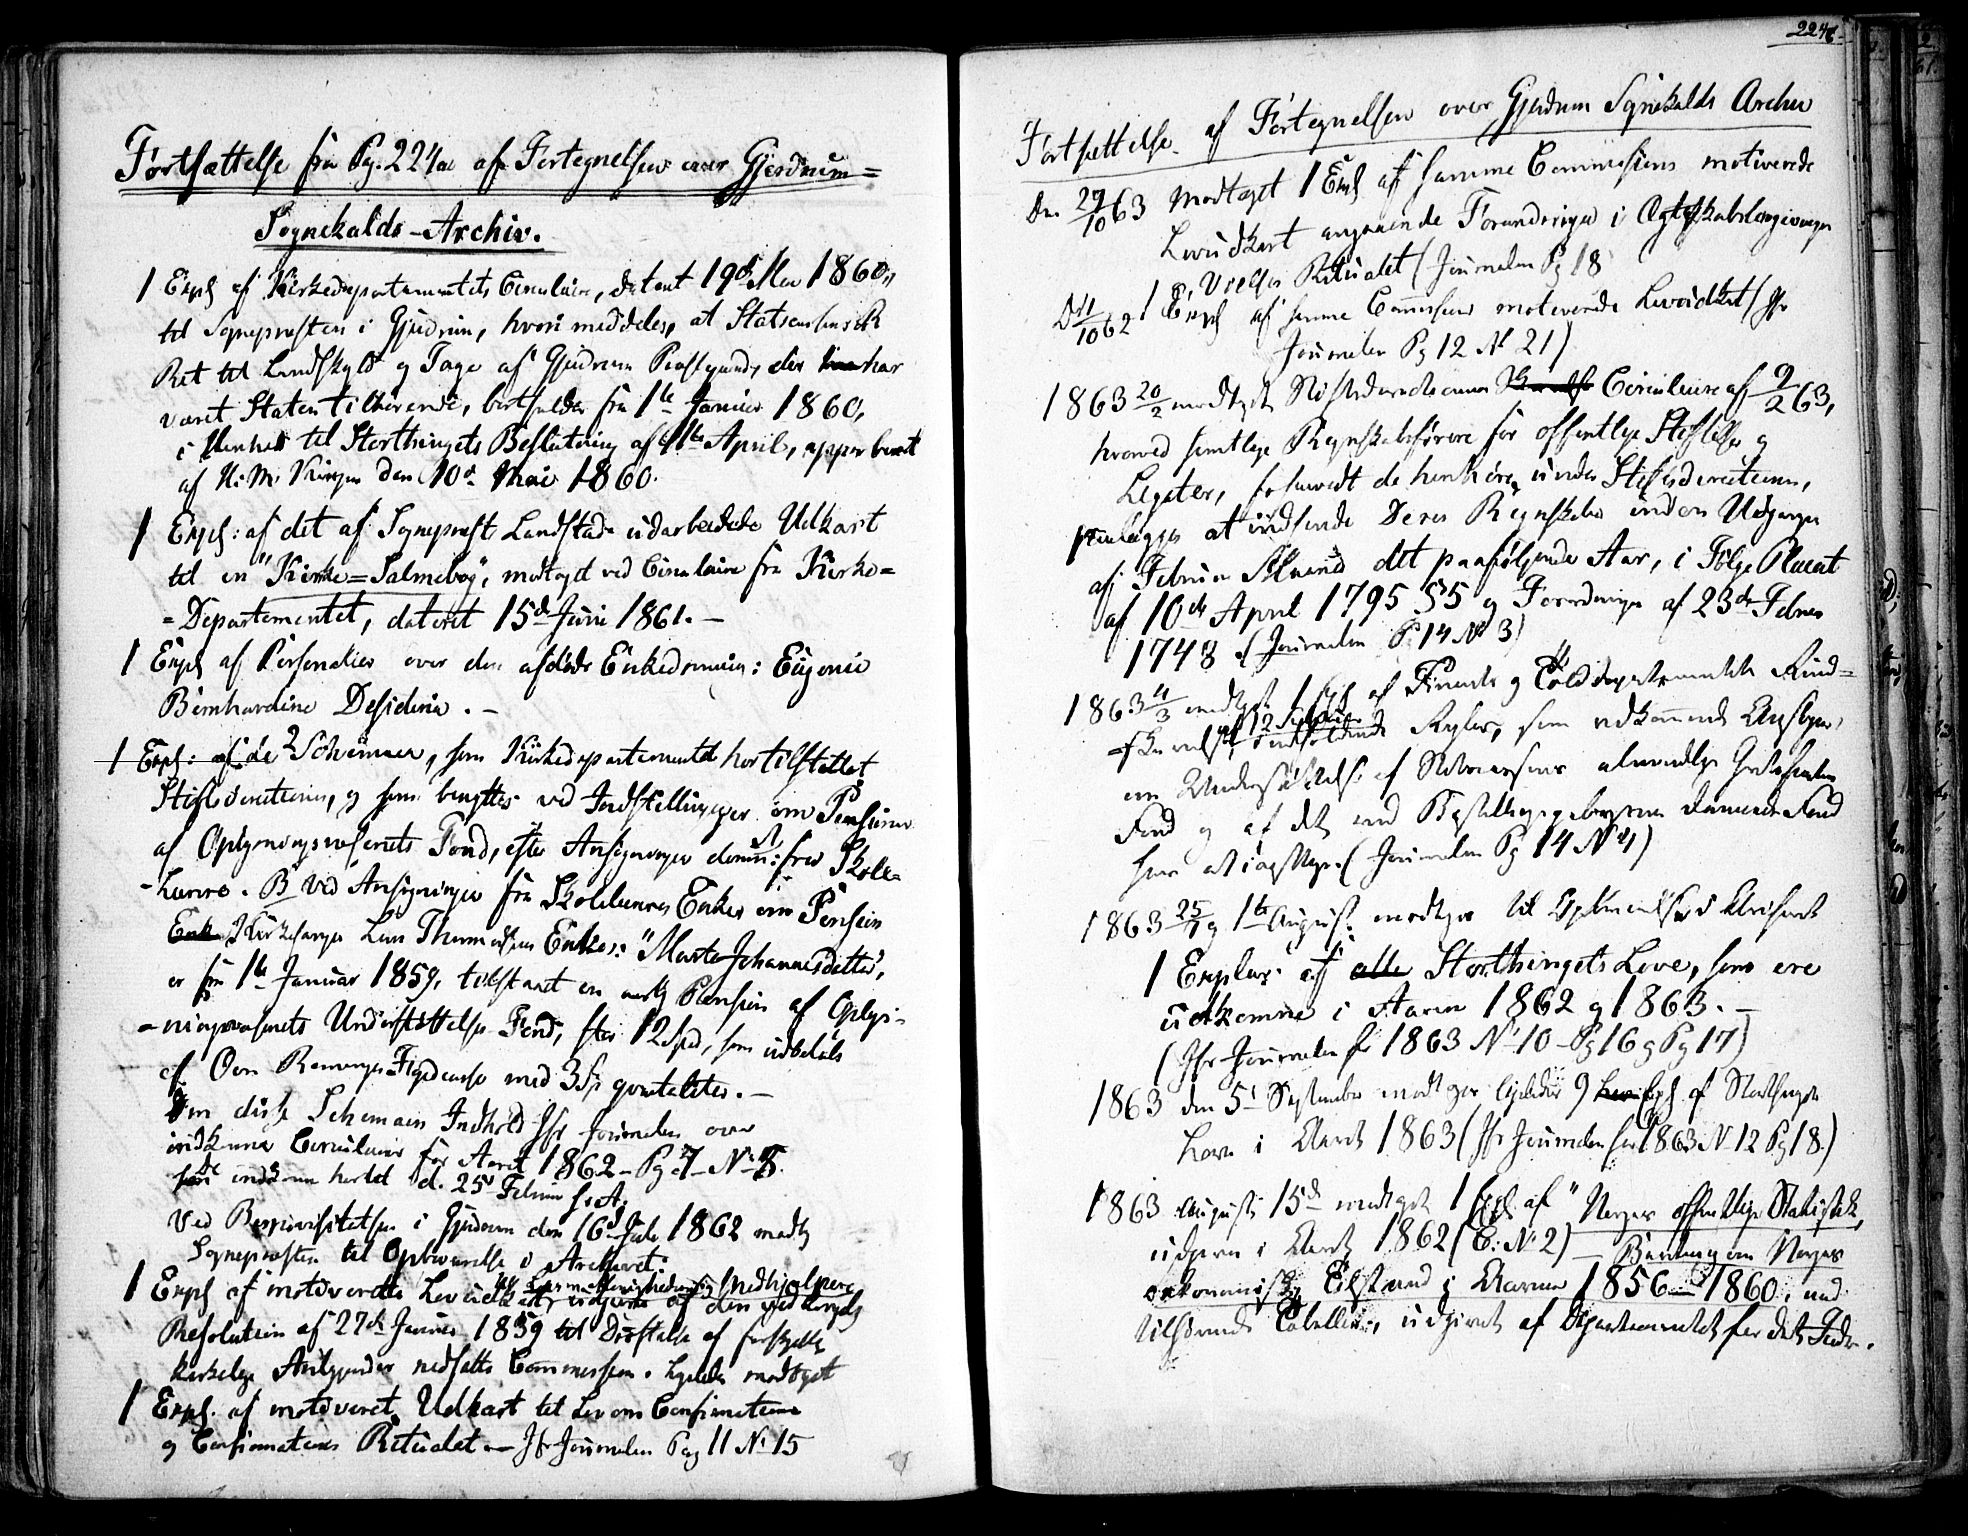 Fortsættelse fra Pg. 224a af Fortegnelsen over Gjerdrum=
Sognekalds-Archiv.
1 Expl af Kirkedepartementets Circulaire, datert 19de Mai 1860,
til Sognepresten i Gjerdrum, hvori meddeles, at Statens
Ret til Landskyld og Tage af Gjerdrum Præstegaard, der har
været Staten tilhørende, bortfalder fra 1te Januar 1860,
i Henhold til Storthingets Beslutning af April, approberet
af H. M. Kongen den 10de Mai 1860.
1 Expl: af det af Sogneprest Landstad udarbeidede Udkast
til en "Kirke=Salmebog", modtaget ved Circulaire fra Kirke=
=Departementet, dateret 15de Juni 1861. —
1 Expl af Personalier over den afdøde Enkedronning: Eugenie
Bernhardine Desideria. —
1 Expl: af de 2 Schemaer, som Kirkedepartementet har tilstillet
Stiftsdirectionen, og som benyttes ved Indstillinger om Pension
af Oplysningsvæsenets Fond, efter Ansøgninger fra Skole-
-Lærere. B Ved Ansøgninger fra Skolelæreres Enker om Pension
Enke Kirkesanger Lars Enke: "Marte Johannesdatter",
er fra 1te Januar 1859, tilstaaet en aarlig Pension af Oplys-
-ningsvæsenets Understøttelses Fond, stor 12 Spd, som udbetales
af Øvre Romeriges Fogedcasse med 3 Sp qvartaliter. —
Om disse Schemaers Indhold Jfr Journalen over
indkomne Circulairer for Aaret 1862 – Pg 7 – No 8.
de indkom hertil d. 25de Februar s. A.
Ved Bispevisitatsen i Gjerdrum den 16de Juli 1862 modtog
Sognepresten til Opbevarelse i Archivet:
1 Expl af motiverede Lovudkast, udgivne af den ved kongelig
Medhjælpere
Resolution af 27de Januar 1859 til Drøftelse af forskjellige
kirkelige Anliggender nedsatte Commission. Ligeledes modtaget
1 Expl. af motiveret Udkast til Lov om Confirmation
og Confirmations Ritualet – Jfr Journalen Pag 11 No 15
224c
Fortsættelse af Fortegnelsen over Gjerdrum Sognekalds Archiv
Den 29/10 63 Modtaget 1 Expl af samme Commissions motiverede
Lovudkast angaaende Forandringer i Ægteskabslovgivningen
og Vielses Ritualet (Journalen Pg 18
/10 62 1 Expl af samme Commissions motiverede Lovudkast (Jfr
Journalen Pg 12 No 21)
1863 20/2 modtaget Stiftsdirectionens Circulaire af 9/2 63,
hvorved samtlige Regnskabsførere for offentlige Stiftelser og
Legater, forsaavidt de henhøre under Stiftsdirectionen,
paalægges at indsende Deres Regnskaber inden Udgangen
af Februar Maaned det paafølgende Aar, i Følge Placat
af 10de April 1795 §5 og Forordningen af 23de Febr
1748 (Journalen Pg 14 No 3)
1863 4/3 modtaget 1 Expl af Finants og Tolddepartementets Kund=
Regler, som vedkommende Ansøgere
om Understøttelse af Statscassens almindelige
Fond og af det ved Bestallingsgebyrerne dannede Fond
have at iagttage. (Journalen Pg 14 No 4)
1863 25/7 og 1te August modtaget til Opbevarelse i Archivet
1 Explar af alle Storthingets Love, som ere
udkomne i Aaren 1862 og 1863. —
(Jfr Journalen for 1863 No 10 – Pg 16 og Pg 17)
1863 den 5te September modtaget ligeledes 9 Expl af Storthingets
Love i Aaret 1863 (Jfr Journalen for 1863 No 12 Pg 18.)
1863 August 15de modtaget 1 Expl af "Norges officielle Statistik,
udgiven i Aaret 1862 (C: No 2) – Beretning om Norges
oekonomiske Tilstand i Aarene 1856–1860, med
tilhørende Tabeller, udgivet af Departementet for det Indre.